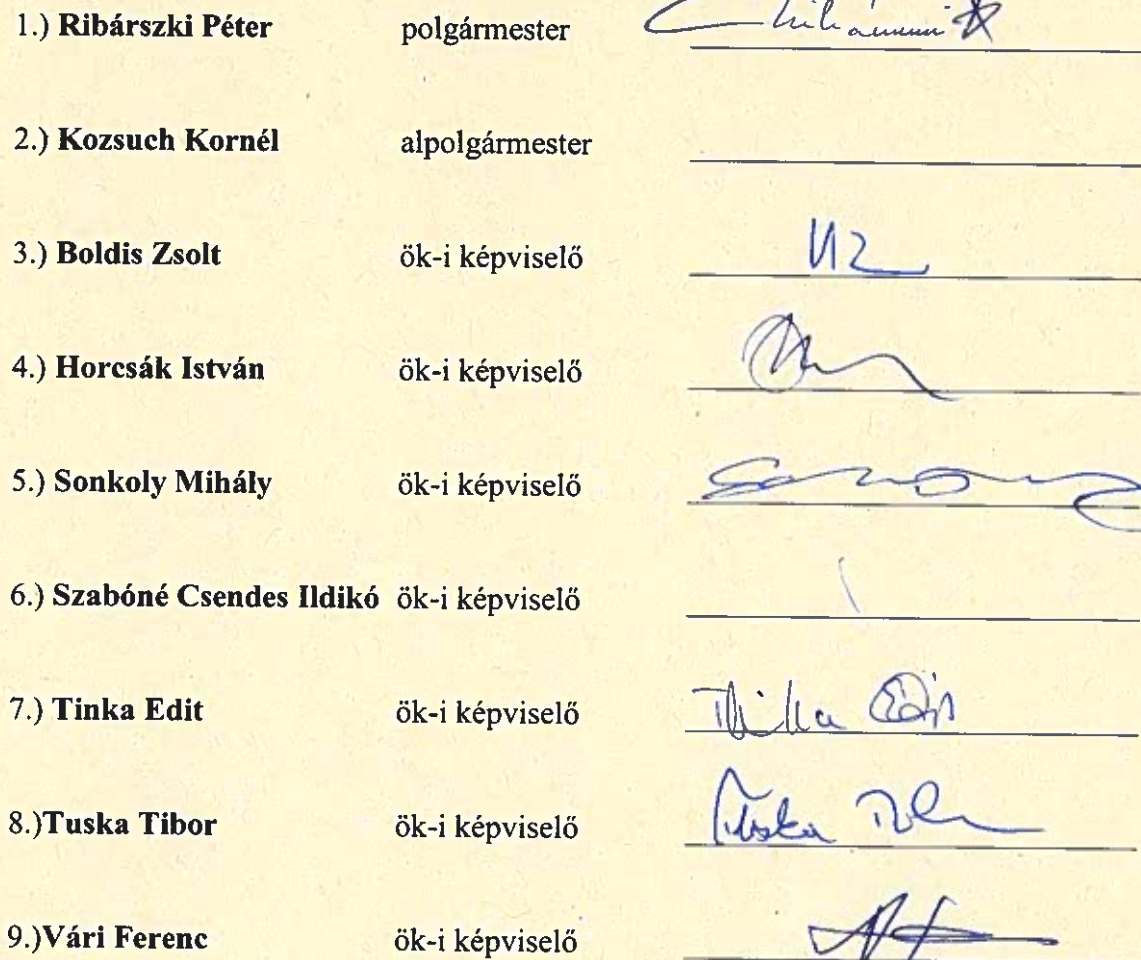 1.) Ribárszki Péter polgármester
2.) Kozsuch Kornél alpolgármester
3.) Boldis Zsolt ök-i képviselő
4.) Horcsák István ök-i képviselő
5.) Sonkoly Mihály ök-i képviselő
6.) Szabóné Csendes Ildikó ök-i képviselő
7.) Tinka Edit ök-i képviselő Tinka Edit
8.)Tuska Tibor ök-i képviselő Tuska
9.)Vári Ferenc ök-i képviselő